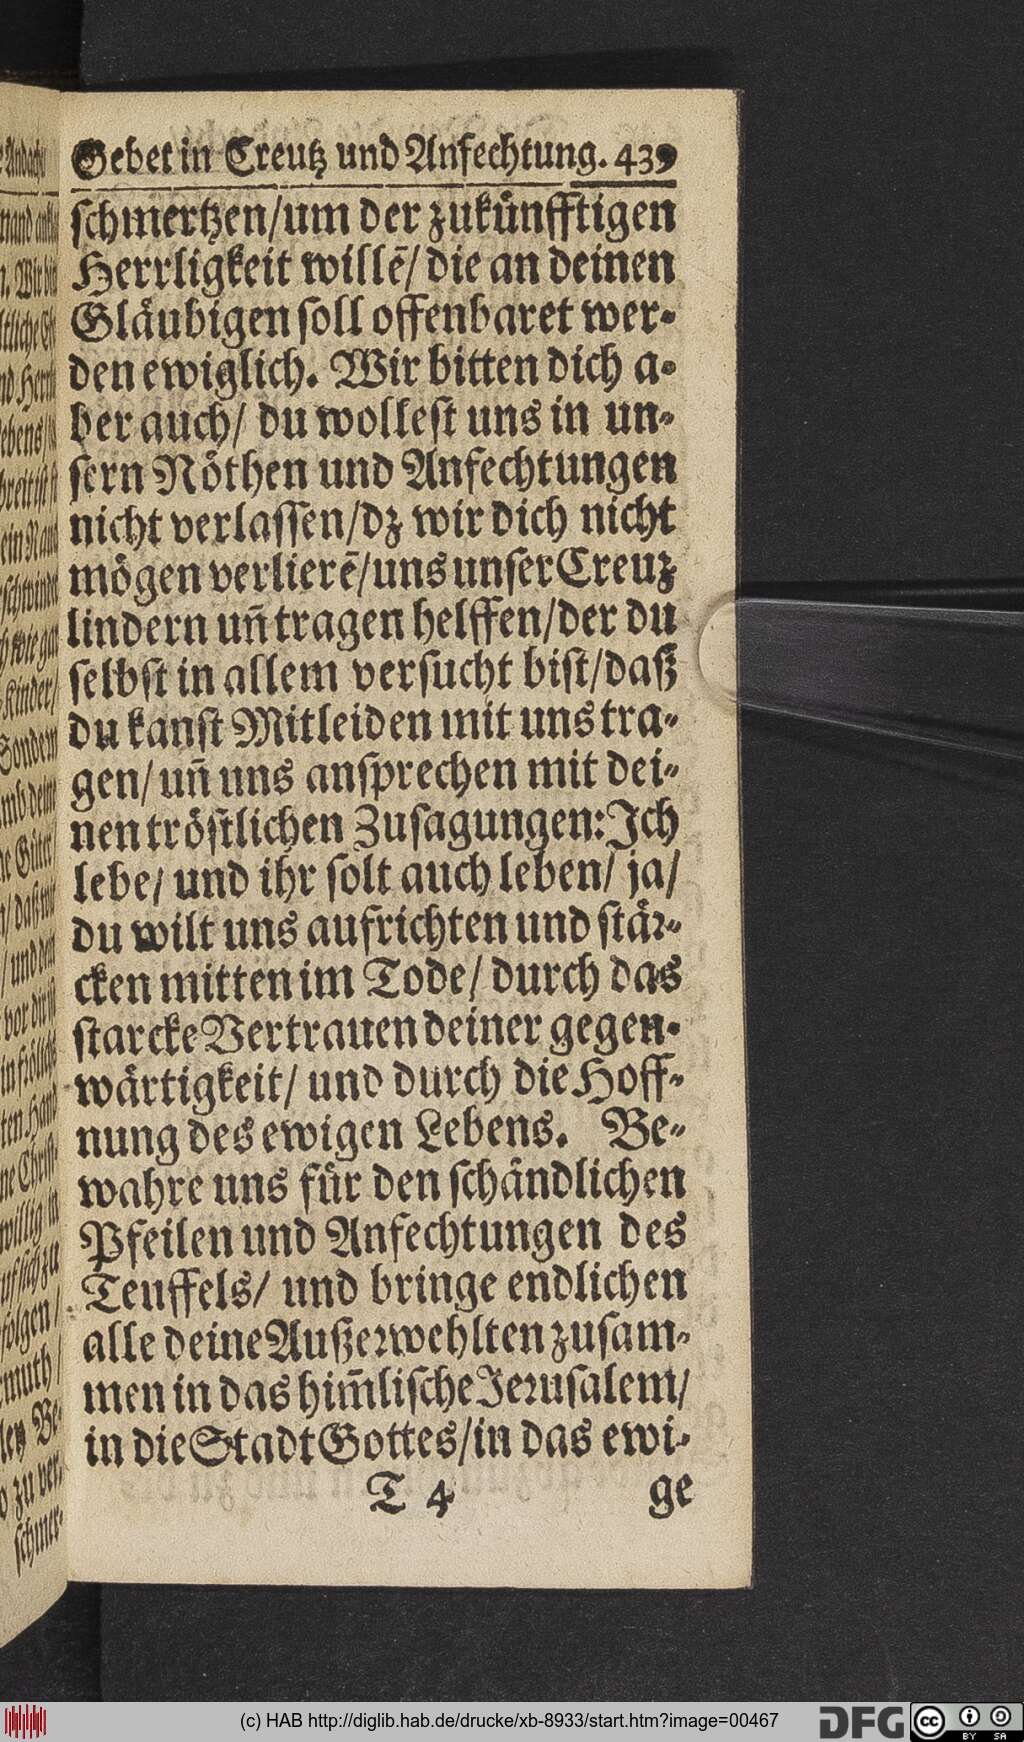 Gebet in Creutz und Anfechtung. 439
schmertzen/um der zukünfftigen
Herrligkeit willē/ die an deinen
Gläubigen soll offenbaret wer-
den ewiglich. Wir bitten dich a-
ber auch/ du wollest uns in un-
sern Nöthen und Anfechtungen
nicht verlassen/dz wir dich nicht
mögen verlierē/uns unser Creuz
lindern uñ tragen helffen/der du
selbst in allem versucht bist/daß
du kanst Mitleiden mit uns tra-
gen/ uñ uns ansprechen mit dei-
nen tröstlichen Zusagungen: Ich
lebe/ und ihr solt auch leben/ ja/
du wilt uns aufrichten und stär-
cken mitten im Tode/ durch das
starcke Vertrauen deiner gegen-
wärtigkeit/ und durch die Hoff-
nung des ewigen Lebens. Be-
wahre uns für den schändlichen
Pfeilen und Anfechtungen des
Teuffels/ und bringe endlichen
alle deine Außerwehlten zusam-
men in das him̄lische Jerusalem/
in die Stadt Gottes/in das ewi-
T 4 ge
(c) HAB http://diglib.hab.de/drucke/xb-8933/start.htm?image=00467
DFG cc BY SA